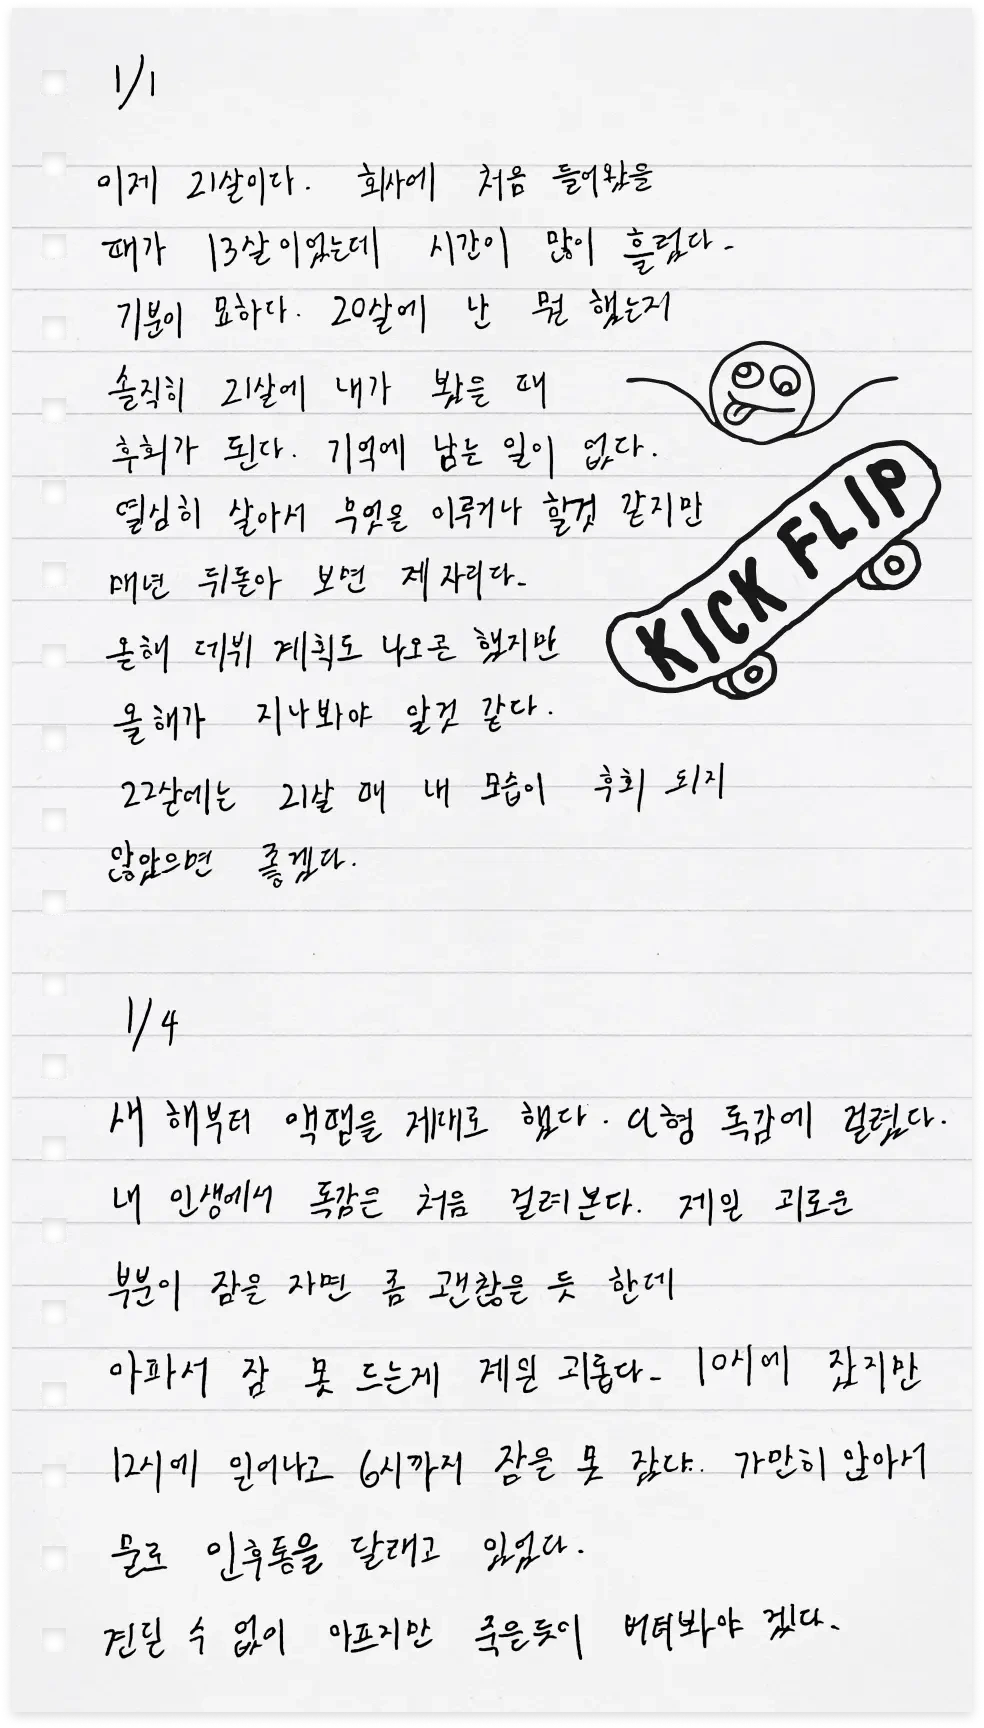 1/1
이제 21살이다. 회사에 처음 들어왔을
때가 13살이었는데 시간이 많이 흘렀다.
기분이 묘하다. 20살에 난 뭘 했는지
솔직히 21살에 내가 봤을 때
후회가 된다. 기억에 남는 일이 없다.
열심히 살아서 무엇을 이루거나 할것 같지만
매년 뒤돌아 보면 제자리다.
올해 데뷔 계획도 나오곤 했지만
올해가 지나봐야 알것 같다.
22살에는 21살 때 내 모습이 후회 되지
않았으면 좋겠다.
KICK FLIP
1/4
새해부터 액땜을 제대로 했다. a형 독감에 걸렸다.
내 인생에서 독감은 처음 걸려본다. 제일 괴로운
부분이 잠을 자면 좀 괜찮을 듯 한데
아파서 잠 못 드는게 제일 괴롭다. 10시에 잤지만
12시에 일어나고 6시까지 잠을 못 잤다.. 가만히 앉아서
물로 인후통을 달래고 있었다.
견딜 수 없이 아프지만 죽은듯이 버텨봐야 겠다.